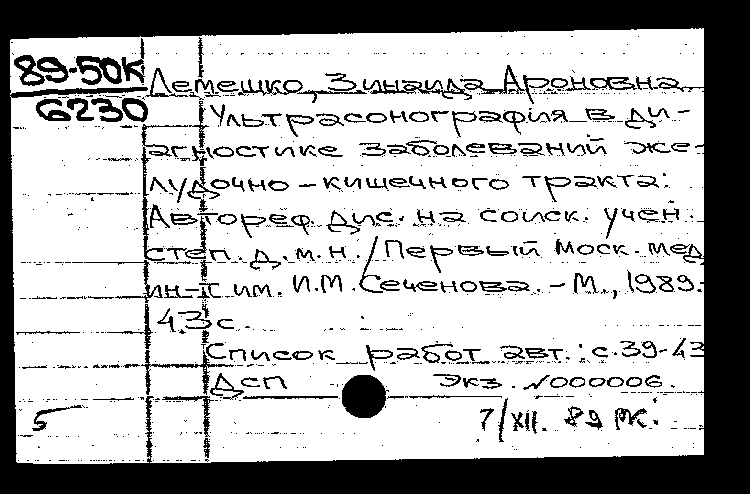 89-50К
6230
Лемешко, Зинаида Ароновна.
Ультрасонография в ди-
агностике заболеваний же-
лудочно-кишечного тракта:
Автореф. дис. на соиск. учен.
степ. д.м.н. / Первый Моск. мед.
ин-т им. И.М. Сеченова. - М., 1989.-
43 с.
Список работ авт.: с. 39-43
Дсп экз. №000006.
5 7/XII. 89 РК.